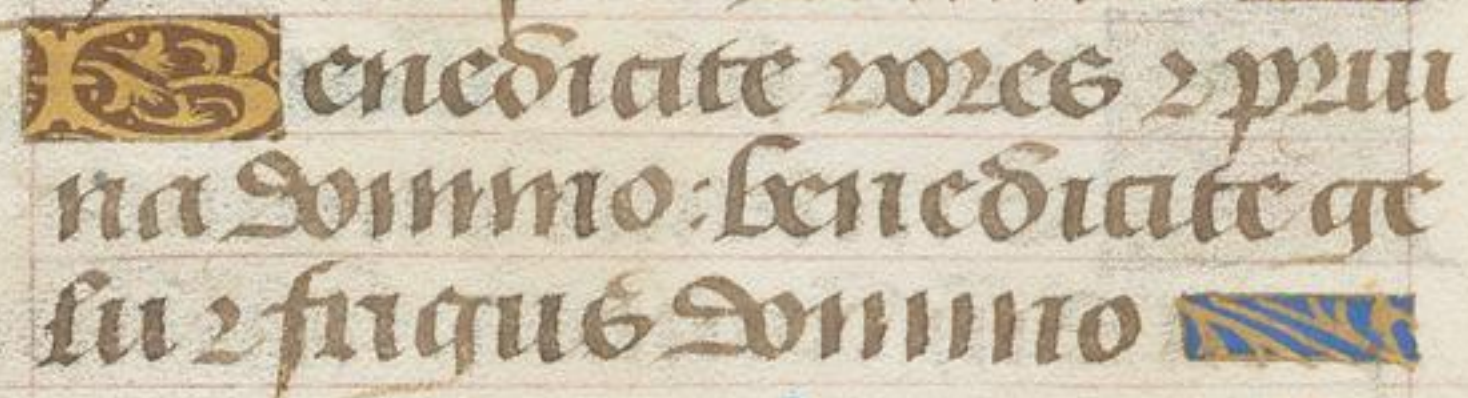 Benedicite rores ⁊ prui
na domino: benedicite ge
lu ⁊ frigus domino